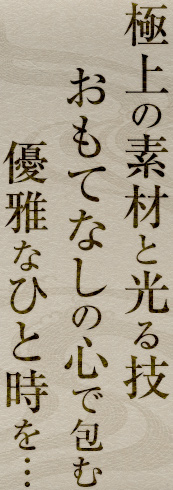 極上の素材と光る技
おもてなしの心で包む
優雅なひと時を…